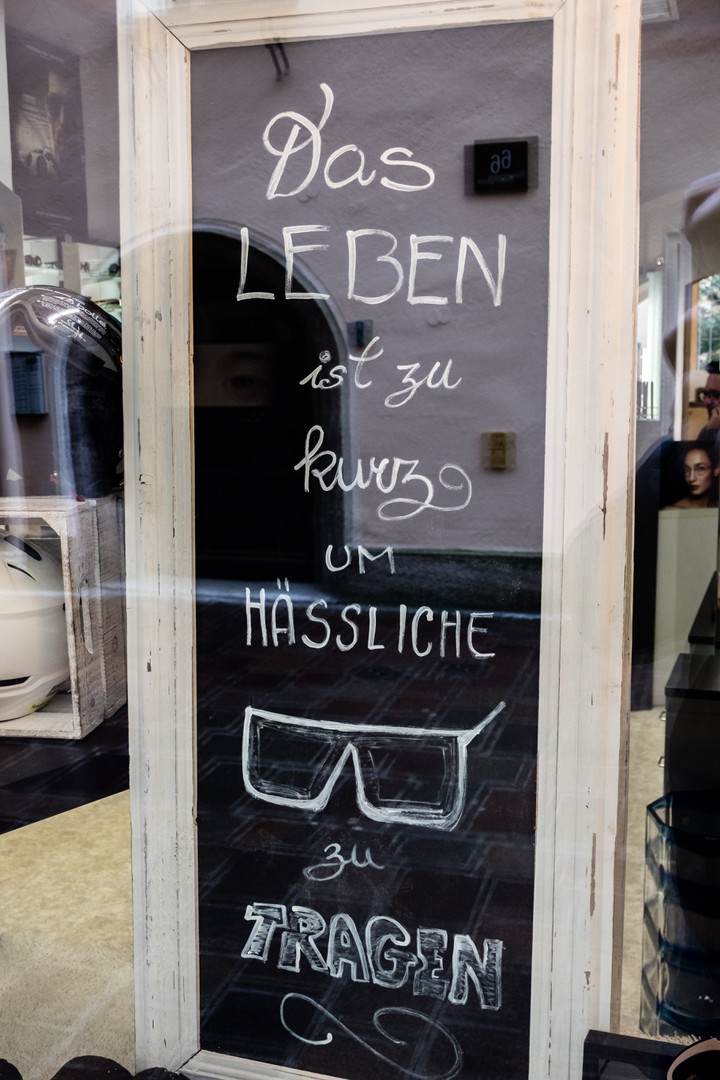 Das
LEBEN
ist zu
kurz
UM
HÄSSLICHE
zu
TRAGEN